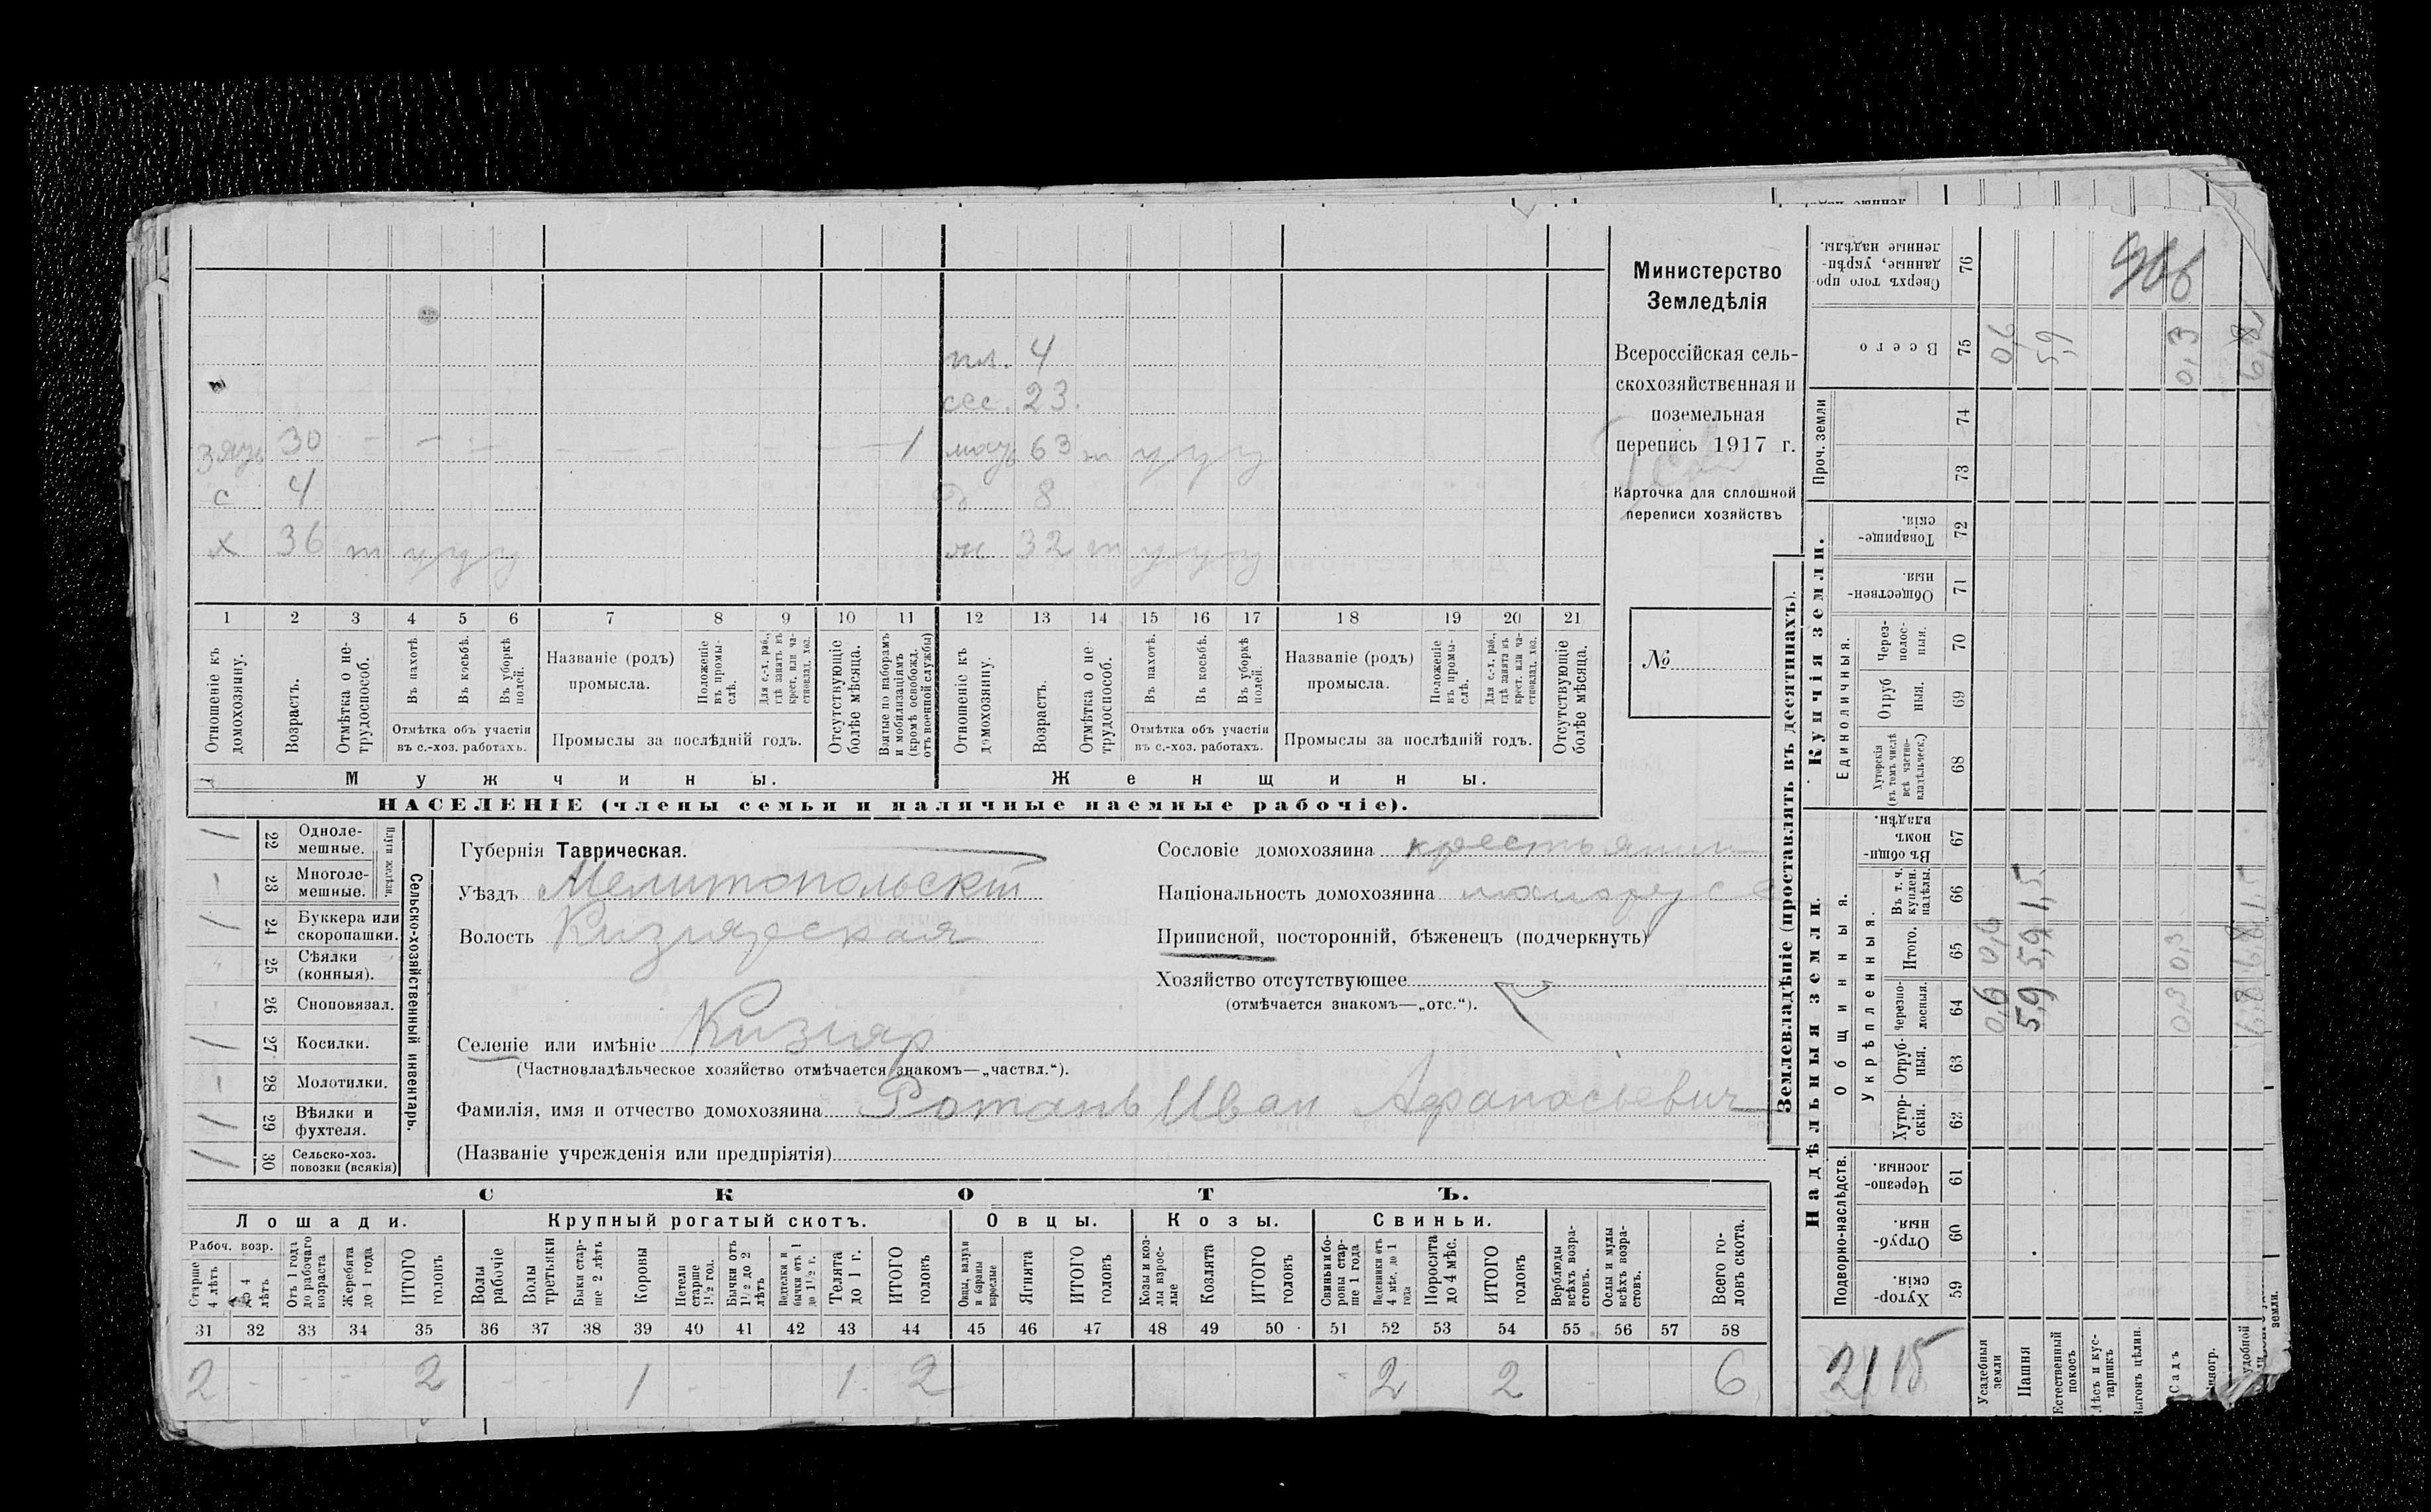 пл. 4
сес. 23.
зять 30 - - - - - - - - 1 мать 63 т у у у
с 4 д 8
х 36 т у у у ж 32 т у у у
1 2 3 4 5 6 7 8 9 10 11 12 13 14 15 16 17 18 19 20 21
Отношеніе къ домохозяину.
Возрастъ.
Отмѣтка о не-трудоспособ.
Въ пахотѣ.
Въ косьбѣ.
Въ уборкѣ полей.
Отмѣтка объ участіи въ с.-хоз. работахъ.
Названіе (родъ) промысла.
Положеніе въ промы-слѣ.
Для с.-х. раб., гдѣ занятъ въ крест. или ча-стновлад. хоз.
Промыслы за послѣдній годъ.
Отсутствующіе болѣе мѣсяца.
Взятые по наборамъ и мобилизаціямъ (кромѣ освобожд. отъ военной службы)
Отношеніе къ домохозяину.
Возрастъ.
Отмѣтка о не-трудоспособ.
Въ пахотѣ.
Въ косьбѣ.
Въ уборкѣ полей.
Отмѣтка объ участіи въ с.-хоз. работахъ.
Названіе (родъ) промысла.
Положеніе въ промы-слѣ.
Для с.-х. раб., гдѣ занята въ крест. или ча-стновлад. хоз.
Промыслы за послѣдній годъ.
Отсутствующіе болѣе мѣсяца.
Мужчины. Женщины.
НАСЕЛЕНІЕ (члены семьи и наличные наемные рабочіе).
Министерство
Земледѣлія
Всероссійская сель-
скохозяйственная и
поземельная
перепись 1917 г.
Карточка для сплошной
переписи хозяйствъ
№
Сельско-хозяйственный инвентарь.
Плуги желѣзн.
1 22 Одноле-мешные.
- 23 Многоле-мешные.
1 24 Буккера или скоропашки.
25 Сѣялки (конныя).
26 Сноповязал.
1 27 Косилки.
- 28 Молотилки.
1 29 Вѣялки и фухтеля.
1 30 Сельско-хоз. повозки (всякія)
Губернія Таврическая.
Уѣздъ Мелитопольскій
Волость Кизіярская
Селеніе или имѣніе Кизіяр
(Частновладѣльческое хозяйство отмѣчается знакомъ—„частвл.“).
Фамилія, имя и отчество домохозяина Ротань Иван Афанасьевич
(Названіе учрежденія или предпріятія)
Сословіе домохозяина крестьянин
Національность домохозяина малорусс
Приписной, посторонній, бѣженецъ (подчеркнуть)
Хозяйство отсутствующее
(отмѣчается знакомъ—„отс.“).
СКОТЪ.
Лошади. Крупный рогатый скотъ. Овцы. Козы. Свиньи.
Рабоч. возр.
Старше 4 лѣтъ
До 4 лѣтъ
Отъ 1 года до рабочаго возраста
Жеребята до 1 года
ИТОГО головъ
Волы рабочіе
Волы третьяки
Быки стар-ше 2 лѣтъ
Коровы
Нетели старше 1½ год.
Бычки отъ 1½ до 2 лѣтъ
Подтелки и бычки отъ 1 до 1½ г.
Телята до 1 г.
ИТОГО головъ
Овцы, валухи и бараны взрослые
Ягнята
ИТОГО головъ
Козы и коз-лы взрос-лые
Козлята
ИТОГО головъ
Свиньи и бо-ровы стар-ше 1 года
Подсвинки отъ 4 мѣс. до 1 года
Поросята до 4 мѣс.
ИТОГО головъ
Верблюды всѣхъ возра-стовъ.
Ослы и мулы всѣхъ возра-стовъ.
Всего го-ловъ скота.
31 32 33 34 35 36 37 38 39 40 41 42 43 44 45 46 47 48 49 50 51 52 53 54 55 56 57 58
2 - - - 2 - - 1 - 1 2 - 2 2 - 6
Землевладѣніе (проставлять въ десятинахъ).
Надѣльныя земли.
Купчія земли.
Проч. земли
Подворно-наслѣдств.
Общинныя.
Укрѣпленныя.
Единоличныя.
Хутор-скія. 59
Отруб-ныя. 60
Черезпо-лосныя. 61
Хутор-скія. 62
Отруб-ныя. 63
Черезпо-лосныя. 64
Итого. 65
Въ т. ч. куплен. надѣлы. 66
Въ общи-номъ владѣн. 67
Хуторскія (въ томъ числѣ всѣ частно-владѣльческ.) 68
Отруб ныя. 69
Через-полос-ныя. 70
Обществен-ныя. 71
Товарище-скія. 72
73
74
Всего 75
Сверхъ того про-данные, укрѣп-ленные надѣлы. 76
Усадебныя земли 0,6 0,6 0,6
Пашня 5,9 5,9 1,5 5,9
Естественный покосъ
Лѣсъ и кус-тарникъ
Выгонъ цѣлин.
Садъ 0,3 0,3 0,3
удобной земли. 6,8 6,8 1,5 6,8
906
2115